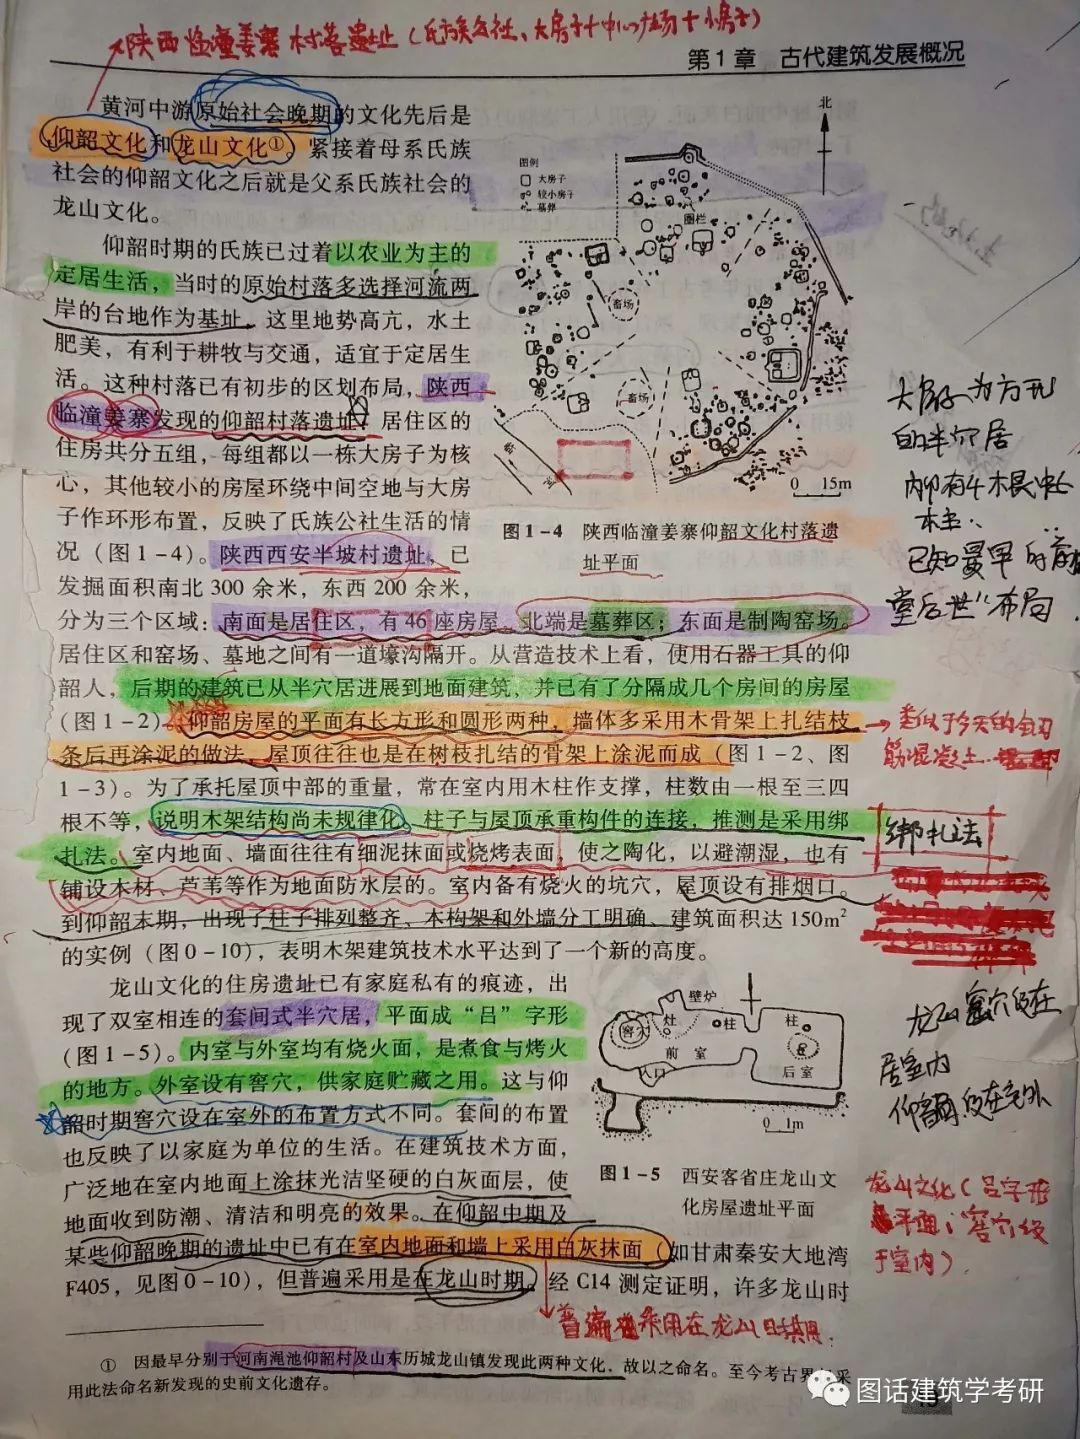 陕西临潼姜寨村落遗址（氏族公社、大房子+中心广场+小房子）
第1章 古代建筑发展概况
黄河中游原始社会晚期的文化先后是
仰韶文化和龙山文化①。紧接着母系氏族
社会的仰韶文化之后就是父系氏族社会的
龙山文化。
仰韶时期的氏族已过着以农业为主的
定居生活，当时的原始村落多选择河流两
岸的台地作为基址，这里地势高亢，水土
肥美，有利于耕牧与交通，适宜于定居生
活。这种村落已有初步的区划布局，陕西
临潼姜寨发现的仰韶村落遗址，居住区的
住房共分五组，每组都以一栋大房子为核
心，其他较小的房屋环绕中间空地与大房
子作环形布置，反映了氏族公社生活的情
况（图1-4）。陕西西安半坡村遗址，已
发掘面积南北300余米，东西200余米，
分为三个区域：南面是居住区，有46座房屋，北端是墓葬区；东面是制陶窑场。
居住区和窑场、墓地之间有一道壕沟隔开。从营造技术上看，使用石器工具的仰
韶人，后期的建筑已从半穴居进展到地面建筑，并已有了分隔成几个房间的房屋
（图1-2）。仰韶房屋的平面有长方形和圆形两种，墙体多采用木骨架上扎结枝
条后再涂泥的做法，屋顶往往也是在树枝扎结的骨架上涂泥而成（图1-2、图
1-3）。为了承托屋顶中部的重量，常在室内用木柱作支撑，柱数由一根至三四
根不等，说明木架结构尚未规律化。柱子与屋顶承重构件的连接，推测是采用绑
扎法。室内地面、墙面往往有细泥抹面或烧烤表面，使之陶化，以避潮湿，也有
铺设木材、芦苇等作为地面防水层的。室内备有烧火的坑穴，屋顶设有排烟口。
到仰韶末期，出现了柱子排列整齐、木构架和外墙分工明确、建筑面积达150m²
的实例（图0-10），表明木架建筑技术水平达到了一个新的高度。
龙山文化的住房遗址已有家庭私有的痕迹，出
现了双室相连的套间式半穴居，平面成“吕”字形
（图1-5）。内室与外室均有烧火面，是煮食与烤火
的地方。外室设有窖穴，供家庭贮藏之用。这与仰
韶时期窖穴设在室外的布置方式不同。套间的布置
也反映了以家庭为单位的生活。在建筑技术方面，
广泛地在室内地面上涂抹光洁坚硬的白灰面层，使
地面收到防潮、清洁和明亮的效果。在仰韶中期及
某些仰韶晚期的遗址中已有在室内地面和墙上采用白灰抹面（如甘肃秦安大地湾
F405，见图0-10），但普遍采用是在龙山时期。经C14测定证明，许多龙山时
普遍采用在龙山时期.
① 因最早分别于河南渑池仰韶村及山东历城龙山镇发现此两种文化，故以之命名。至今考古界
采
用此法命名新发现的史前文化遗存。
北
图例
大房子
较小房子
墓葬
圈栏
畜场
畜场
0 15m
图1-4 陕西临潼姜寨仰韶文化村落遗
址平面
大房子为方形
的半穴居
内部有4木根中心
木柱..
已知最早的前
堂后世"布局
类似于今天的钢
筋混凝土
绑扎法
壁炉
窖穴
灶
柱
柱
前室
入口
后室
0 1m
图1-5 西安客省庄龙山文
化房屋遗址平面
龙山窖穴设在
居室内
仰韶设在室外
龙山文化（吕字形
平面；窖穴设
于室内）
图话建筑学考研